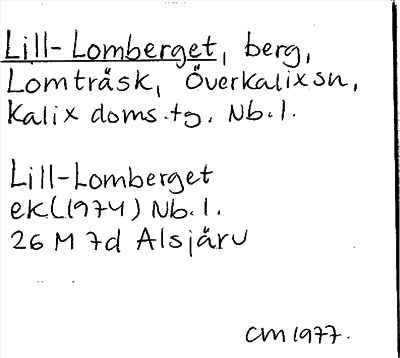 Lill-Lomberget, berg,
Lomträsk, Överkalixsn,
Kalix doms.tg. Nb.l.
Lill-Lomberget
ek.(1974) Nb.l.
26 M 7d Alsjärv
CM 1977.